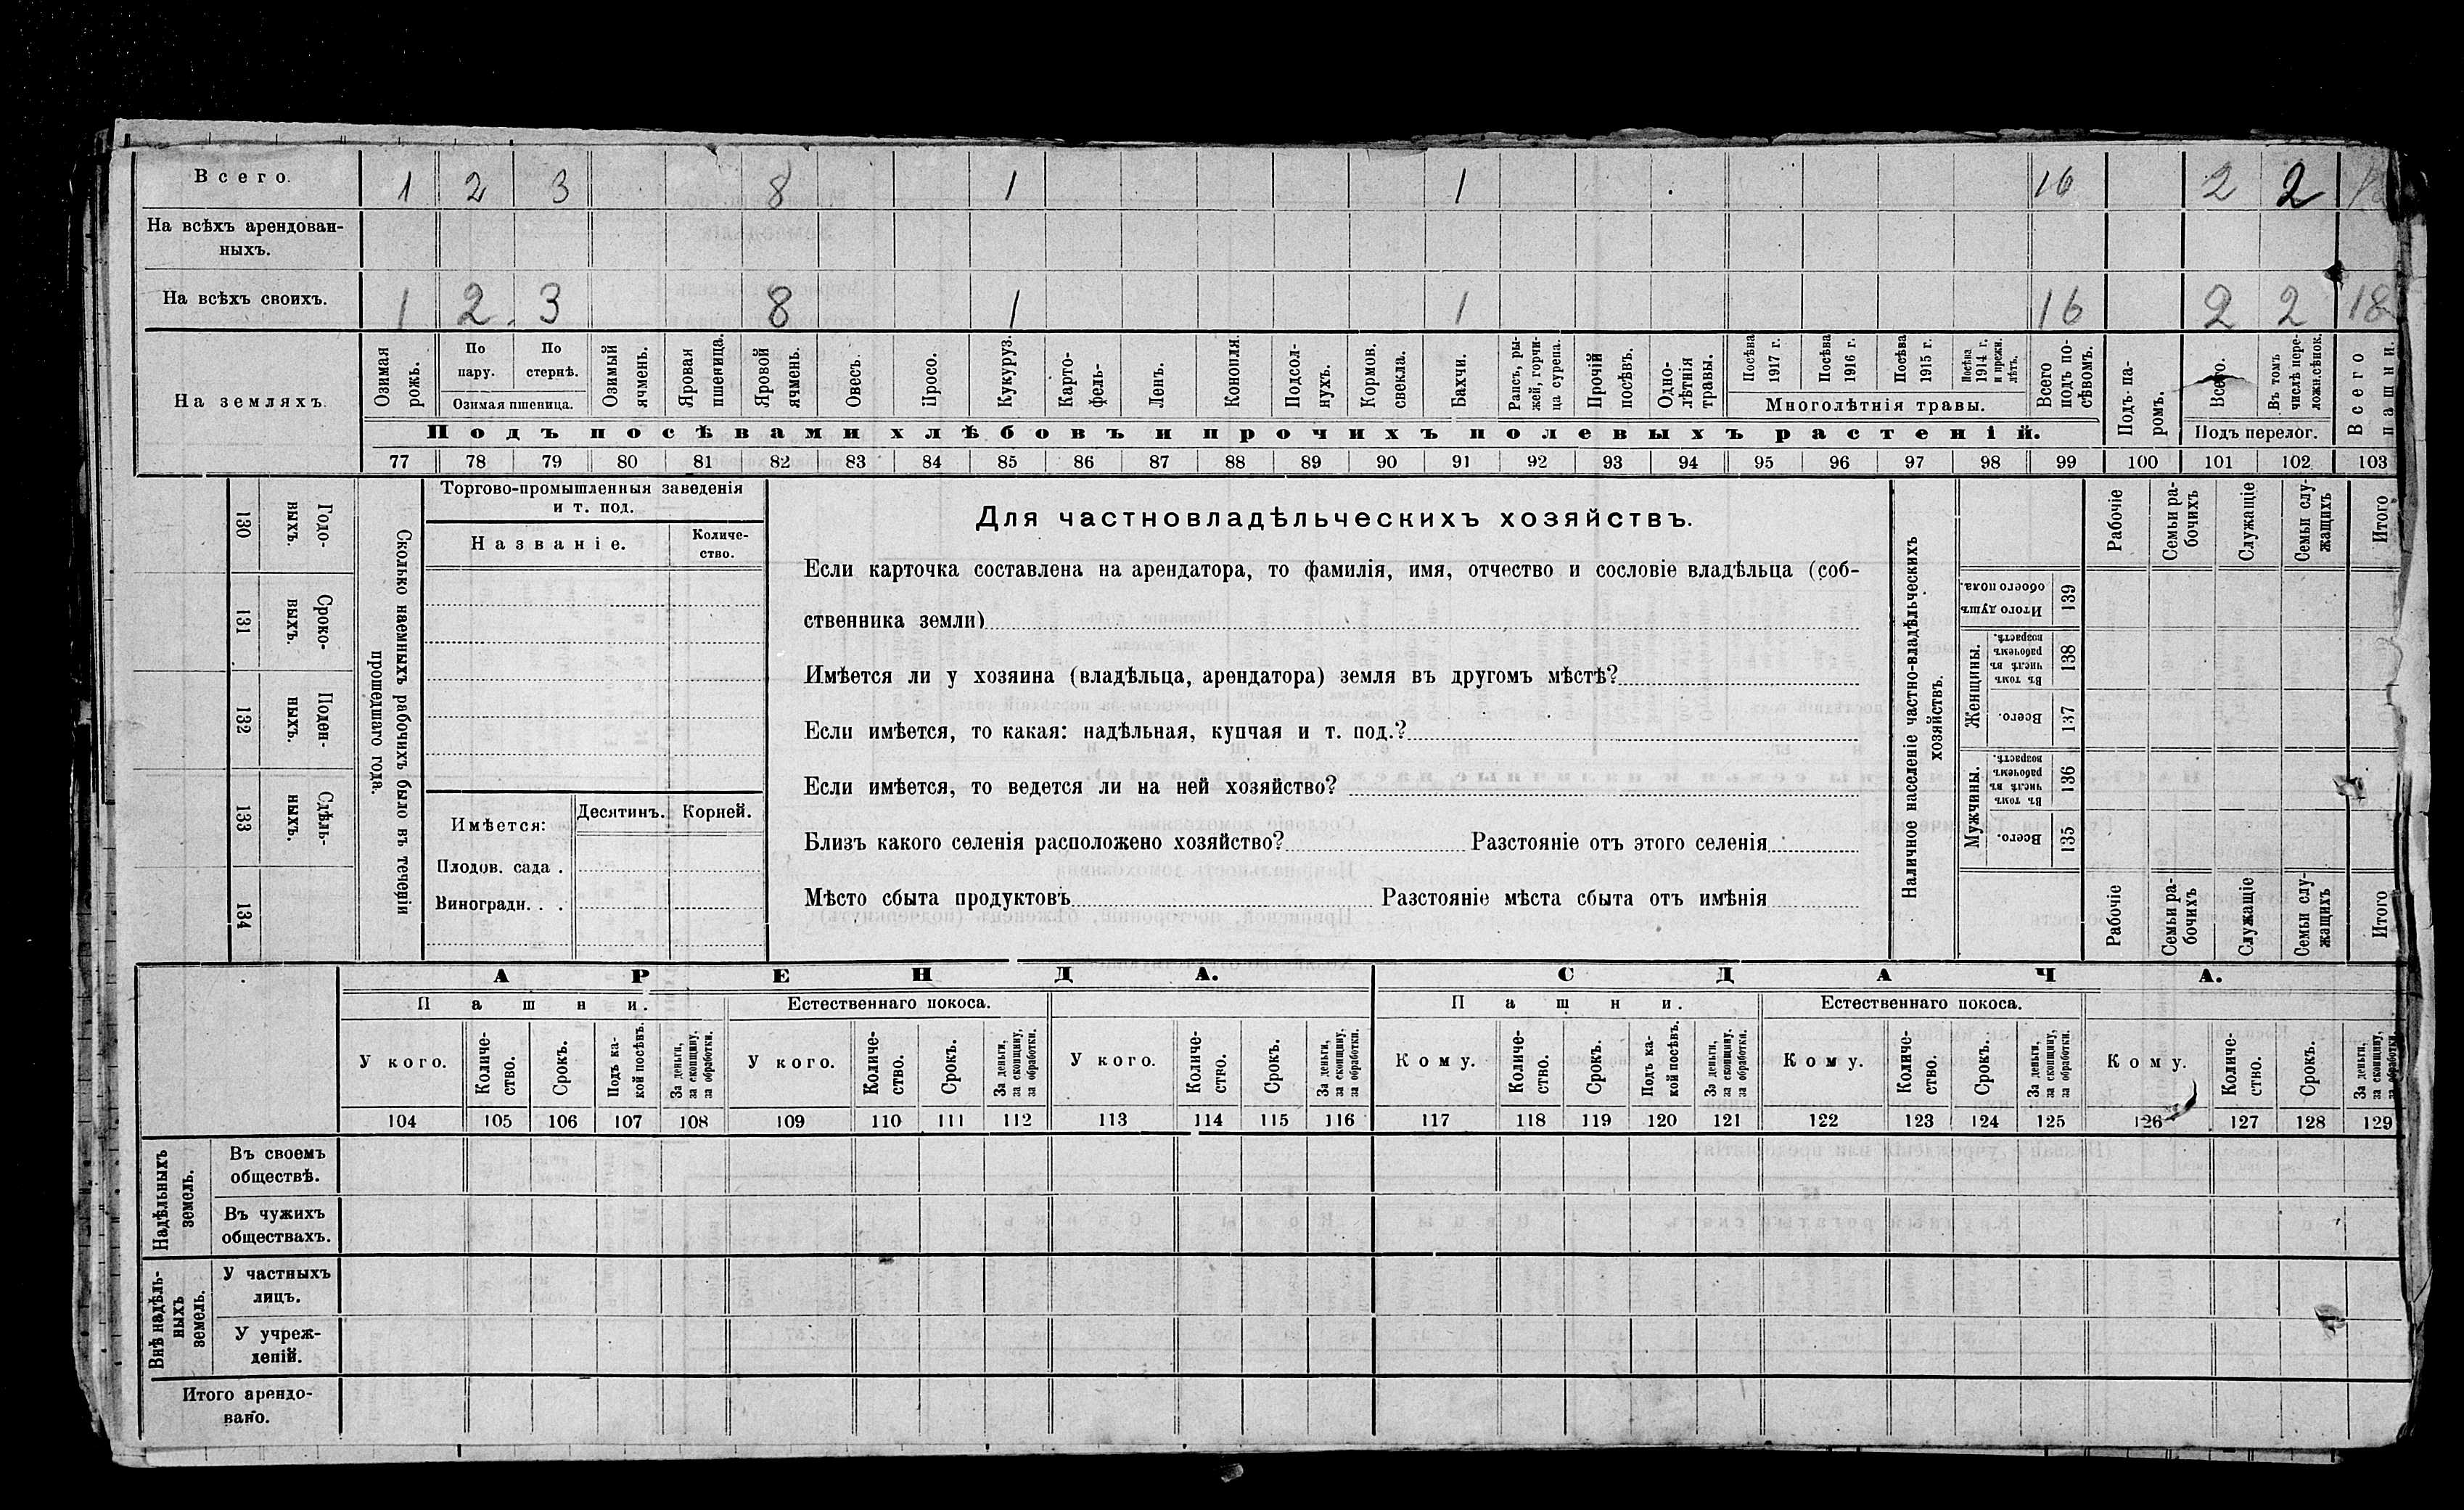 Всего. 1 2 3 8 1 1 16 2 2
На всѣхъ арендован-
ныхъ.
На всѣхъ своихъ. 1 2 3 8 1 1 16 2 2 18
На земляхъ.
Озимая рожь.
По пару.
По стернѣ.
Озимая пшеница.
Озимый ячмень.
Яровая пшеница.
Яровой ячмень.
Овесъ.
Просо.
Кукуруз.
Карто-
фель-
Ленъ.
Конопля.
Подсол-
нухъ.
Кормов.
свекла.
Бахчи.
Рапсъ, ры-
жей, горчи-
ца сурепа.
Прочій
посѣвъ.
Одно-
лѣтнія
травы.
Посѣва
1917 г.
Посѣва
1916 г.
Посѣва
1915 г.
Посѣва
1914 г.
и прежн.
лѣтъ.
Многолѣтнія травы.
Всего
подъ по-
сѣвомъ.
Подъ па-
ромъ.
Всего.
Въ томъ
числѣ пере-
ложн.сѣнок.
Подъ перелог.
Всего
пашни.
Подъ посѣвами хлѣбовъ и прочихъ полевыхъ растеній.
77 78 79 80 81 82 83 84 85 86 87 88 89 90 91 92 93 94 95 96 97 98 99 100 101 102 103
130 Годо-
выхъ.
131 Сроко-
выхъ.
132 Поден-
ныхъ.
133 Сдѣль-
ныхъ.
134
Сколько наемныхъ рабочихъ было въ теченіи
прошедшаго года.
Торгово-промышленныя заведенія
и т. под.
Названіе.
Количе-
ство.
Имѣется:
Десятинъ. Корней.
Плодов. сада .
Виноградн. . .
Для частновладѣльческихъ хозяйствъ.
Если карточка составлена на арендатора, то фамилія, имя, отчество и сословіе владѣльца (соб-
ственника земли)
Имѣется ли у хозяина (владѣльца, арендатора) земля въ другомъ мѣстѣ?
Если имѣется, то какая: надѣльная, купчая и т. под.?
Если имѣется, то ведется ли на ней хозяйство?
Близъ какого селенія расположено хозяйство? Разстояніе отъ этого селенія
Мѣсто сбыта продуктовъ Разстояніе мѣста сбыта отъ имѣнія
Наличное населеніе частно-владѣльческихъ
хозяйствъ.
Рабочіе
Семьи ра-
бочихъ
Служащіе
Семьи слу-
жащихъ
Итого
Итого душъ
обоего пола.
139
Женщины.
Въ томъ
числѣ въ
рабочемъ
возрастѣ.
138
Всего.
137
Мужчины.
Въ томъ
числѣ въ
рабочемъ
возрастѣ.
136
Всего.
135
Рабочіе
Семьи ра-
бочихъ
Служащіе
Семьи слу-
жащихъ
Итого
АРЕНДА. СДАЧА.
Пашни. Естественнаго покоса. Пашни. Естественнаго покоса.
У кого.
Количе-
ство.
Срокъ.
Подъ ка-
кой посѣвъ.
За деньги,
за скопщину,
за обработки.
У кого.
Количе-
ство.
Срокъ.
За деньги,
за скопщину,
за обработки.
У кого.
Количе-
ство.
Срокъ.
За деньги,
за скопщину,
за обработки.
Кому.
Количе-
ство.
Срокъ.
Подъ ка-
кой посѣвъ.
За деньги,
за скопщину,
за обработки.
Кому.
Количе-
ство.
Срокъ.
За деньги,
за скопщину,
за обработки.
Кому.
Количе-
ство.
Срокъ.
За деньги,
за скопщину,
за обработки.
104 105 106 107 108 109 110 111 112 113 114 115 116 117 118 119 120 121 122 123 124 125 126 127 128 129
Надѣльныхъ
земель.
Въ своемъ
обществѣ.
Въ чужихъ
обществахъ.
Внѣ надѣль-
ныхъ
земель.
У частныхъ
лицъ.
У учреж-
деній.
Итого арендо-
вано.